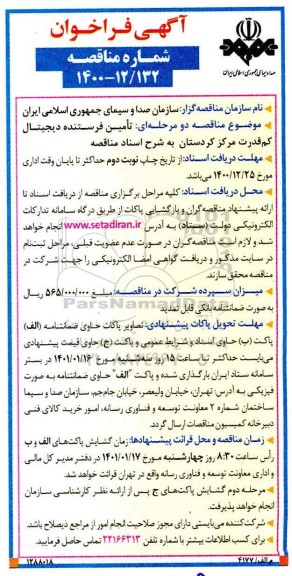 آگهی فراخوان
شماره مناقصه
۱۴۰۰-۱۲/۱۳۲
صدا و سیمای جمهوری اسلامی ایران
نام سازمان مناقصه‌گزار: سازمان صدا و سیمای جمهوری اسلامی ایران
موضوع مناقصه دو مرحله‌ای: تأمین فرستنده دیجیتال
کم‌قدرت مرکز کردستان به شرح اسناد مناقصه
مهلت دریافت اسناد: از تاریخ چاپ نوبت دوم حداکثر تا پایان وقت اداری
مورخ ۱۴۰۰/۱۲/۲۵ می‌باشد.
محل دریافت اسناد: کلیه مراحل برگزاری مناقصه از دریافت اسناد تا
ارائه پیشنهاد مناقصه‌گران و بازگشایی پاکات از طریق درگاه سامانه تدارکات
الکترونیکی دولت (ستاد) به آدرس www.setadiran.ir انجام خواهد
شد و لازم است مناقصه‌گران در صورت عدم عضویت قبلی، مراحل ثبت‌نام
در سایت مذکور و دریافت گواهی امضا الکترونیکی را جهت شرکت در
مناقصه محقق سازند.
میزان سپرده شرکت در مناقصه: مبلغ ۵۶۵/۰۰۰/۰۰۰ ریال
به صورت ضمانتنامه بانکی قابل تمدید
مهلت تحویل پاکات پیشنهادی: تصاویر پاکات حاوی ضمانتنامه (الف)
پاکت (ب) حاوی اسناد و شرایط عمومی و پاکت (ج) حاوی قیمت پیشنهادی
می‌بایست حداکثر تا ساعت ۱۵ روز سه‌شنبه مورخ ۱۴۰۱/۰۱/۱۶ در بستر
سامانه ستاد ایران بارگذاری شده و پاکت "الف" حاوی ضمانتنامه به صورت
فیزیکی به آدرس: تهران، خیابان ولیعصر، خیابان جام‌جم، سازمان صدا و سیما
ساختمان شماره ۲ معاونت توسعه و فناوری رسانه، امور خرید کالای فنی
دبیرخانه کمیسیون مناقصات ارسال گردد.
زمان مناقصه و محل قرائت پیشنهادها: زمان گشایش پاکت‌های الف و ب
رأس ساعت ۸:۳۰ روز چهارشنبه مورخ ۱۴۰۱/۰۱/۱۷ در دفتر مدیر کل مالی
و اداری معاونت توسعه و فناوری رسانه واقع در تهران قرائت خواهد شد.
مرحله دوم گشایش پاکت‌های ج پس از ارائه نظر کارشناسی سازمان
انجام خواهد پذیرفت.
شرکت‌کننده می‌بایستی دارای مجوز صلاحیت انجام امور از مراجع ذیصلاح باشد.
برای کسب اطلاعات بیشتر با شماره تلفن ۲۲۱۶۶۳۱۳ تماس حاصل فرمایید.
م الف/۴۱۷۷
۱۲۸۸۰۱۸